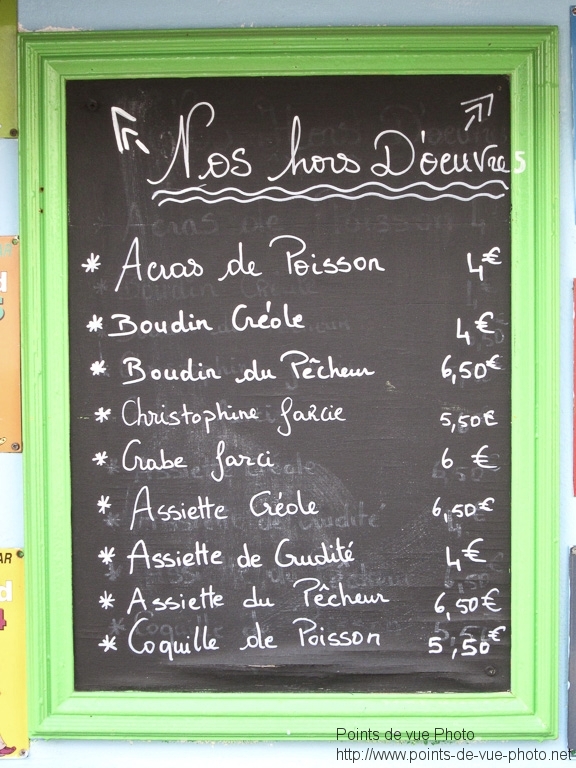 Nos hors D'oeuvres
* Acras de Poisson 4€
* Boudin Créole 4€
* Boudin du Pêcheur 6,50€
* Christophine farcie 5,50€
* Crabe farci 6 €
* Assiette Créole 6,50€
* Assiette de Crudité 4€
* Assiette du Pêcheur 6,50€
* Coquille de Poisson 5,50€
Points de vue Photo
http://www.points-de-vue-photo.net